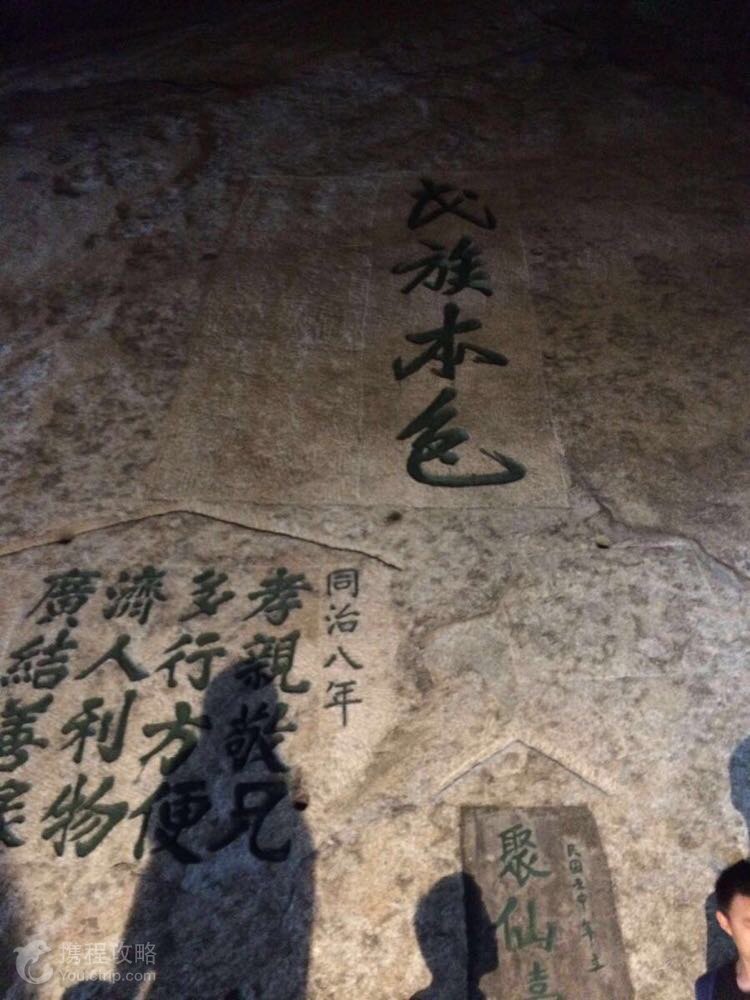 民族本色
同治八年
孝親敬兄
多行方便
濟人利物
廣結善
民国壬申年立
聚仙
携程攻略
You.ctrip.com